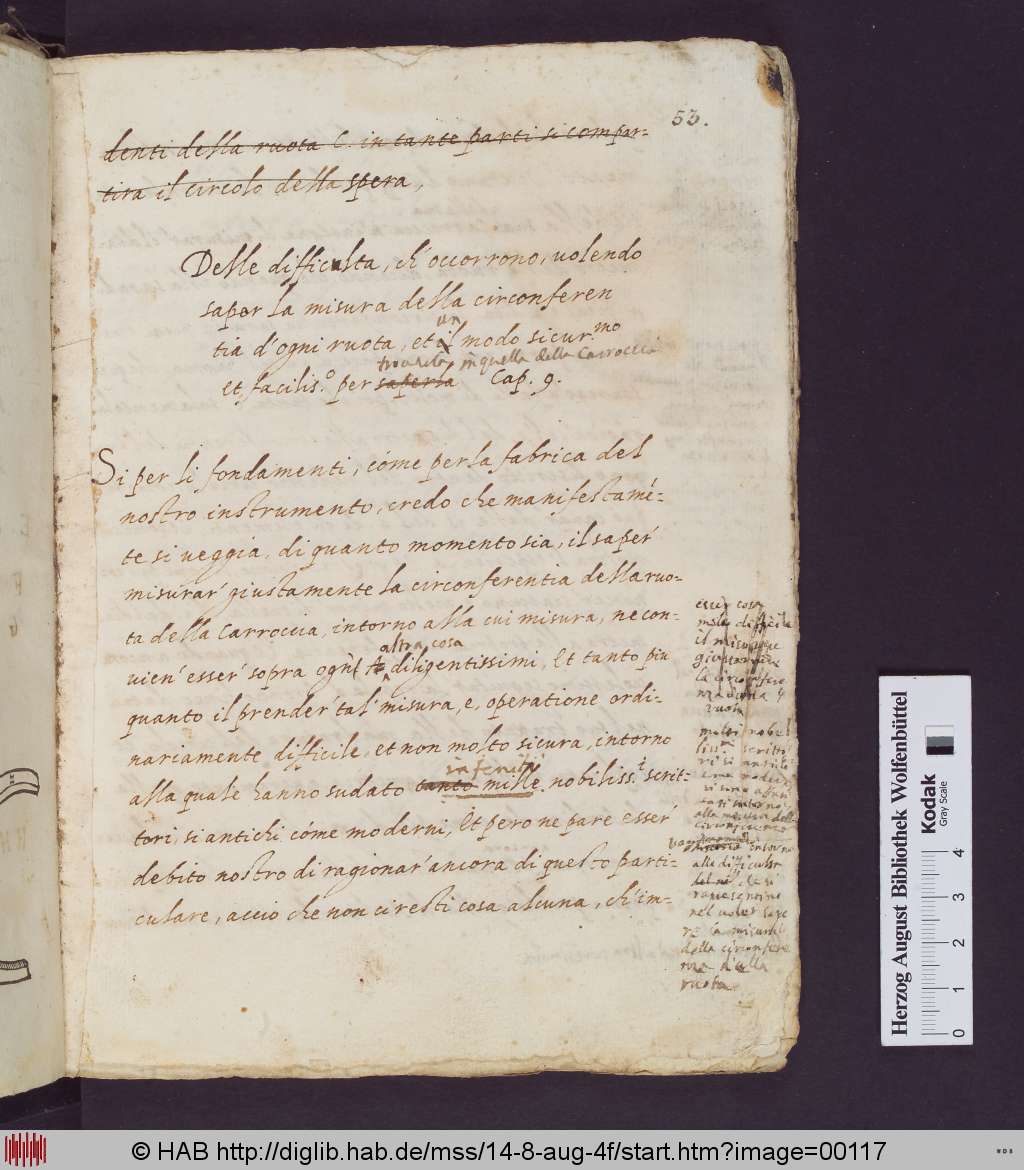 53.
denti della ruota C. in tante parti si compar-
tira il circolo della spera,
Delle difficulta, ch'occorrono, volendo
saper la misura della circonferen
tia d'ogni ruota, et il modo sicur.mo
un
trovarla, in quella della Carroccia
et facilis.o per saperla Cap. 9.
Si per li fondamenti, cóme per la fabrica del
nostro instrumento, credo che manifestamé-
te si veggia, di quanto momento sia, il saper'
misurar' giustamente la circonferentia della ruo-
ta della Carroccia, intorno alla cui misura, ne con-
altra cosa
uien' esser' sopra ogni diligentissimi, Et tanto piu
quanto il prender' tal' misura, e, operatione ordi-
nariamente difficile, et non molto sicura, intorno
infeniti
alla quale hanno sudato tanto mille nobiliss.i scrit-
tori, si antichi cóme moderni, Et pero ne pare esser'
debito nostro di ragionar' ancora di questo parti-
culare, accio che non ci resti cosa alcuna, ch'im-
esser cosa
molto difficile
il misurare
giustamente
la circonfere
nza
ruota
molti nobel
liss.i scritti
ri si antichi
come moderni
si sono
intorno
alla misura della
circonferenza
intorno
alla difficulta
che si
rapresentino
nel voler sape
re la misura
della circonfere
nza della
ruota
Herzog August Bibliothek Wolfenbüttel
Kodak
Gray Scale
0 1 2 3 4
© HAB http://diglib.hab.de/mss/14-8-aug-4f/start.htm?image=00117